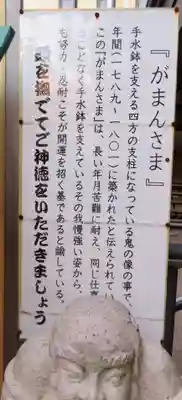 『がまんさま』
手水鉢を支える四方の支柱になっている鬼の像の事で、
年間(一七八九~一八〇一)に築かれたと伝えられてい
この『がまんさま』は、長い年月苦難に耐え、同じ仕事
ことなく手水鉢を支えているその我慢強い姿から、
も努力・忍耐こそが開運を招く基であると諭している。
を撫でてご神徳をいただきましょう